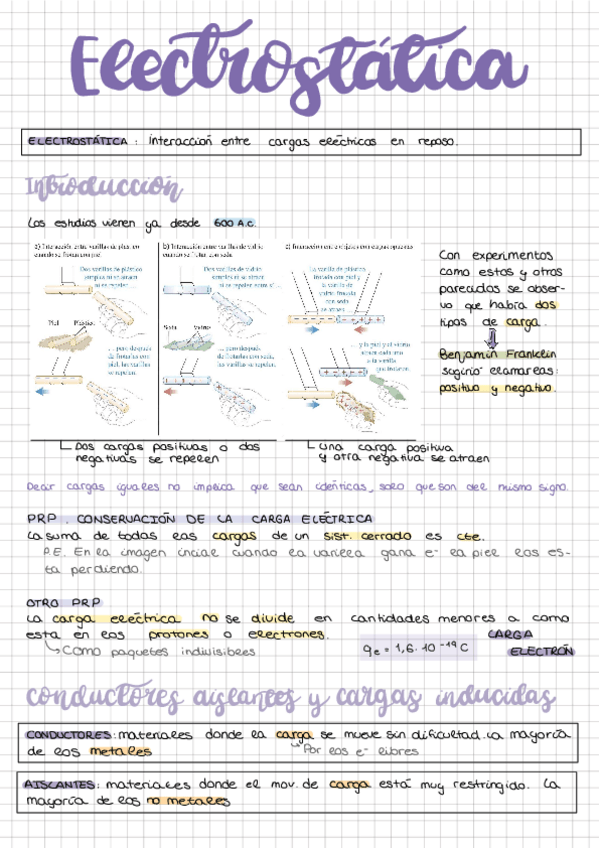 Electrostática
ELECTROSTÁTICA : interacción entre cargas eléctricas en reposo.
Introducción
Los estudios vienen ya desde 600 A.C.
a) Interacción entre varillas de plástico
cuando se frotan con piel
b) Interacción entre varillas de vidrio
cuando se frotan con seda
c) Interacción entre objetos con cargas opuestas
Dos varillas de plástico
simples ni se atraen
ni se repelen ...
Piel Plástico
... pero después
de frotarlas con
piel, las varillas
se repelen.
Dos varillas de vidrio
simples ni se atraen
ni se repelen entre sí ...
Seda Vidrio
... pero después
de frotarlas con
seda, las varillas
se repelen.
La varilla de plástico
frotada con piel y
la varilla de
vidrio frotada
con seda
se atraen ...
... y la piel y el vidrio
atraen cada uno
a la varilla
que frotaron.
Con experimentos
como estos y otros
parecidos se obser-
vo que había dos
tipos de carga.
Benjamin Franklin
sugirió llamarlas:
positiva y negativo.
Dos cargas positivas o dos
negativas se repelen
Una carga positiva
y otra negativa se atraen
Decir cargas iguales no implica que sean idénticas, solo que son del mismo signo.
PRP. CONSERVACIÓN DE LA CARGA ELÉCTRICA
La suma de todas las cargas de un sist. cerrado es cte.
P.E. En la imagen inicial cuando la varilla gana e- la piel los es-
ta perdiendo.
OTRO PRP
La carga eléctrica no se divide en cantidades menores a como
esta en los protones o electrones.
Como paquetes indivisibles
qe = 1,6·10⁻¹⁹ C
CARGA
ELECTRÓN
conductores aislantes y cargas inducidas
CONDUCTORES: materiales donde la carga se mueve sin dificultad. La mayoría
de los metales
Por los e- libres
AISLANTES: materiales donde el mov. de carga está muy restringido. La
mayoría de los no metales